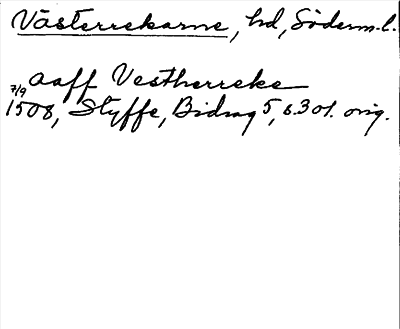 Västerrekarne, hd, Söderm.l.
aaff Vestherreke
7/9 1508, Styffe, Bidrag 5, s. 301. orig.